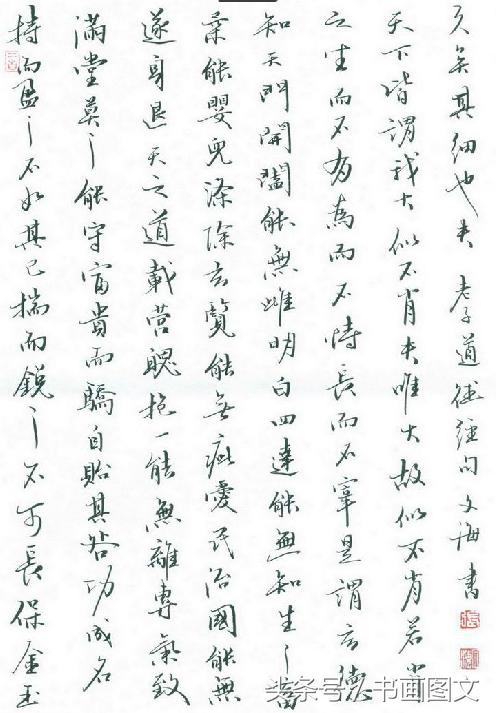 持而盈之不如其已揣而銳之不可長保金玉
滿堂莫之能守富貴而驕自貽其咎功成名
遂身退天之道載營魄抱一能無離專氣致
柔能嬰兒滌除玄覽能無疵愛民治國能無
知天門開闔能無雌明白四達能無知生之畜
之生而不有為而不恃長而不宰是謂玄德
天下皆謂我大似不肖夫唯大故似不肖若肖
久矣其細也夫 老子道德經句文海書
头条号/书画图文